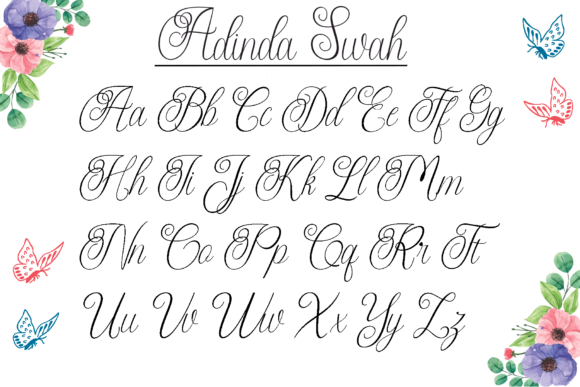 Adinda Swah
Aa Bb Cc Dd Ee Ff Gg
Hh Ii Jj Kk Ll Mm
Nn Oo Pp Qq Rr Tt
Uu Vv Ww Xx Yy Zz